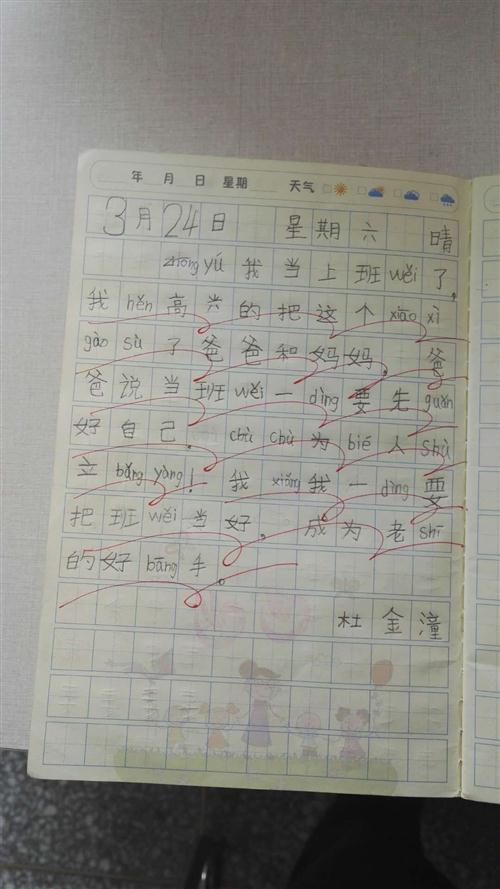 年 月 日 星期 天气
3月24日 星期六 晴
zhōng yú 我当上班 wěi 了,
我 hěn 高兴的把这个 xiāo xì
gào sù 了爸爸和妈妈。爸
爸说当班 wěi 一 dìng 要先 guǎn
好自己。chù chù 为 bié 人 shù
立 bǎng yàng! 我 xiǎng 我一 dìng 要
把班 wěi 当好,成为老 shī
的好 bāng 手。
杜金潼